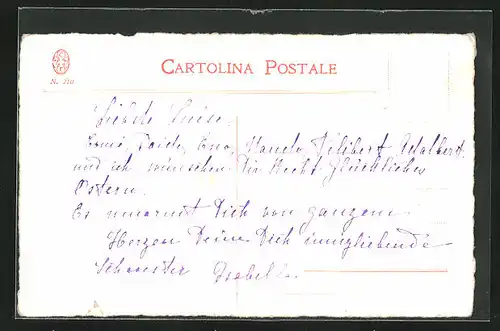 CARTOLINA POSTALE
Liebste Luise.
Filibert Adalbert
und ich wünschen Dir Recht Glückliches
Ostern.
Es umarmt Dich von ganzem
Herzen Deine Dich innigliebende
Schwester Isabella